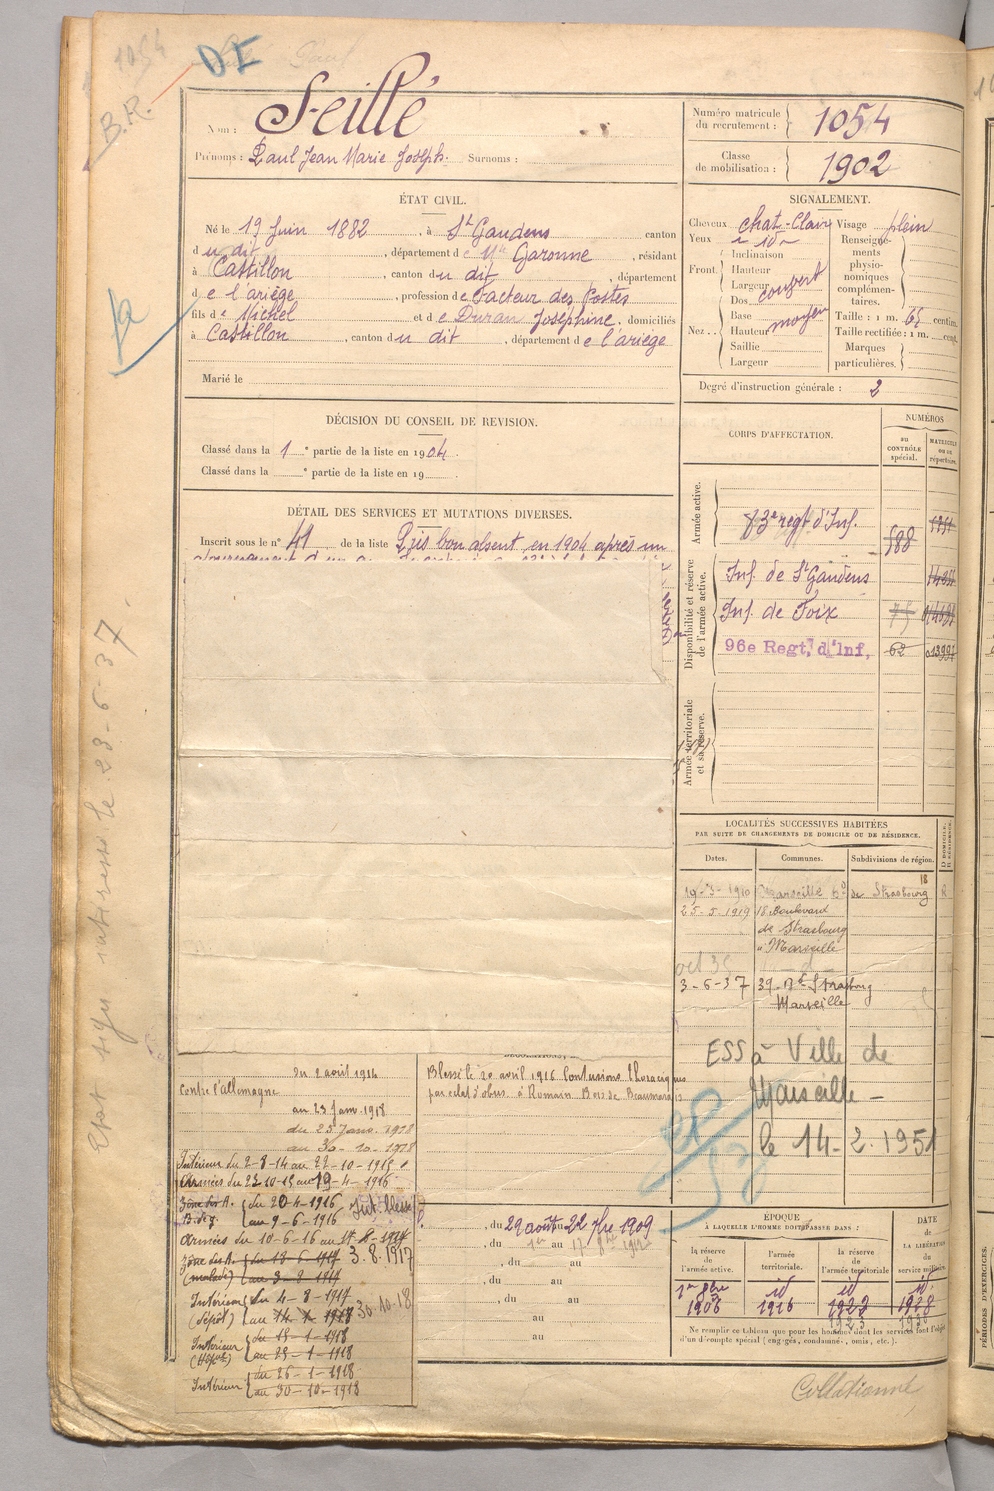 1054
DE
B.R.
Nom : Seillé
Prénoms : Paul Jean Marie Joseph. Surnoms :
Numéro matricule du recrutement : 1054
Classe de mobilisation : 1902
ÉTAT CIVIL.
Né le 19 Juin 1882, à St Gaudens canton
du dit, département de Hte Garonne, résidant
à Castillon, canton du dit département
de l'ariège, profession de Facteur des Postes
fils de Michel et de Duran Joséphine, domiciliés
à Castillon, canton du dit, département de l'ariège
Marié le
SIGNALEMENT.
Cheveux chat-Clair Visage plein
Yeux - id -
Front. Inclinaison
Hauteur
Largeur couvert
Nez . . Dos
Base moyen
Hauteur
Saillie
Largeur
Renseignements physionomiques complémentaires.
Taille : 1 m. 65 centim.
Taille rectifiée : 1 m. cent.
Marques particulières.
Degré d'instruction générale : 2
DÉCISION DU CONSEIL DE REVISION.
Classé dans la 1 e partie de la liste en 1904.
Classé dans la e partie de la liste en 19
DÉTAIL DES SERVICES ET MUTATIONS DIVERSES.
Inscrit sous le n° 41 de la liste Pris bon absent en 1904 après un
CORPS D'AFFECTATION.
NUMÉROS
au CONTRÔLE spécial.
MATRICULE OU DE répertoire.
Armée active.
83e regt d'Inf. 588
Disponibilité et réserve de l'armée active.
Inf. de St Gaudens
Inf. de Foix 75
96e Regt. d'Inf. 62
Armée territoriale et sa réserve.
LOCALITÉS SUCCESSIVES HABITÉES
PAR SUITE DE CHANGEMENTS DE DOMICILE OU DE RÉSIDENCE.
Dates. Communes. Subdivisions de région.
D DOMICILE. R RÉSIDENCE.
19-3-1910 Marseille Bd de Strasbourg 18 R
25-5-1919 18 Boulevard
de Strasbourg
à Marseille
oct 35
3-6-37 39. Bd Strasbourg
Marseille
ESS à Ville de
Marseille -
le 14-2.1951
Etat signé intéressé le 23-6-37.
du 2 août 1914
Contre l'allemagne
au 23 Janv. 1918
du 25 Janv. 1918
au 30-10-1918
Intérieur du 2-8-14 au 22-10-1915
Armées du 23-10-15 au 19-4-1916
Zône des A. du 20-4-1916 Int. blessé
au 9-6-1916
Armées du 10-6-16 au 17-6-1917
Zône des A. du 18-6-1917 3.8.1917
(malade) au 3-8-1917
Intérieur du 4-8-1917
(dépôt) au 14-1-1918 30-10-18
Intérieur du 15-1-1918
au 25-1-1918
Intérieur du 26-1-1918
au 30-10-1918
Blessé le 20 avril 1916 Contusions thoraciques
par éclat d'obus. à Romain Bois de Beaumarais
, du 29 août au 22 7bre 1909
, du au
, du au
du au
, du au
au
au
ÉPOQUE
À LAQUELLE L'HOMME DOIT PASSER DANS :
la réserve de l'armée active.
l'armée territoriale.
la réserve de l'armée territoriale
DATE de LA LIBÉRATION du service militaire.
1er 8bre 1906
id 1916
id 1922
id 1928
Ne remplir ce tableau que pour les hommes dont les services font l'objet
d'un décompte spécial ( engagés, condamnés, omis, etc.).
PÉRIODES D'EXERCICES.
Collationné